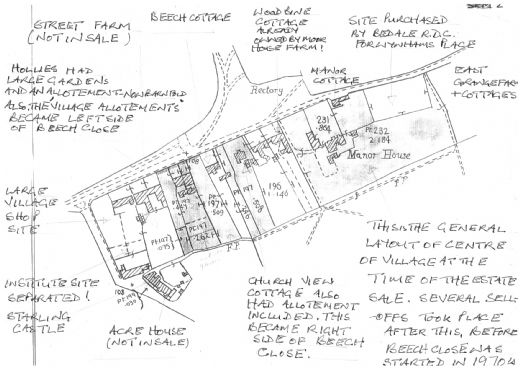 STREET FARM
(NOT IN SALE)
BEECH COTTAGE
WOODBINE
COTTAGE
ALREADY
OWNED BY MOOR
HOUSE FARM!
SITE PURCHASED
BY BEDALE R.D.C.
FOR WYNHAMS PLACE
HOLLIES HAD
LARGE GARDENS
AND AN ALLOTMENT-NOW BARN BLD
ALSO, THE VILLAGE ALLOTMENTS
BECAME LEFT SIDE
OF BEECH CLOSE
MANOR
COTTAGE
EAST
GRANGE FARM
+ COTTAGES
Rectory
231
.804
PT. 232
2.184
Manor House
LARGE
VILLAGE
SHOP
SITE
196
1.146
F.P.
F.P.
INSTITUTE SITE
SEPARATED!
STARLING
CASTLE
ACRE HOUSE
(NOT IN SALE)
CHURCH VIEW
COTTAGE ALSO
HAD ALLOTMENT
INCLUDED. THIS
BECAME RIGHT
SIDE OF BEECH
CLOSE.
THIS IS THE GENERAL
LAYOUT OF CENTRE
OF VILLAGE AT THE
TIME OF THE ESTATE
SALE. SEVERAL SELL
-OFFS TOOK PLACE
AFTER THIS, BEFORE
BEECH CLOSE WAS
STARTED IN 1970'S